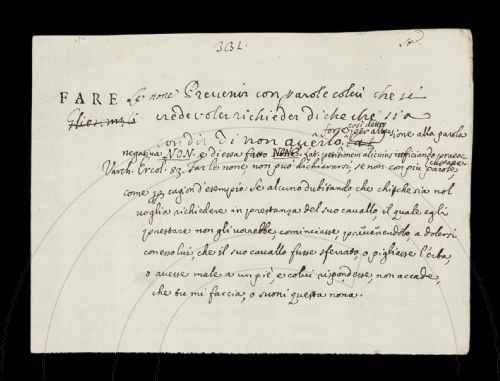 331.
FARE Le none Prevenir con parole colui che si
crede voler richieder di che che sia
con dir di non averlo.
forse così detto per allusione alla parola
negativa NON e di essa fatto NONE. Lat.
Varch. Ercol. 82. Far le none non può dichiararsi, se non con più parole,
come per cagion d'esempio: Se alcuno dubitando che chi che sia nol
voglia richiedere in prestanza del suo cavallo, il quale egli
prestare non gli vorrebbe, cominciasse, prevenendolo, a dolersi
con esso lui, che il suo cavallo fusse sferrato, o pigliasse l'erba,
o avesse male a un piè, e colui rispondesse, non accade,
che tu mi faccia, o suoni questa nona.